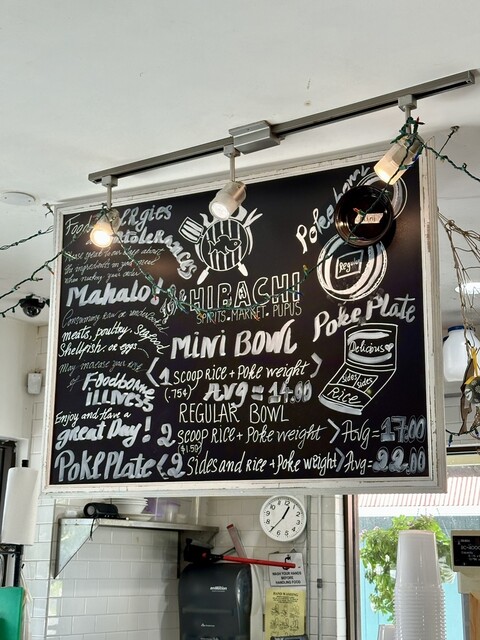 Food Allergies
Intolerances
Please
Mahalo!
Consuming raw or undercooked
meats, poultry, Seafood
Shellfish, or eggs
May increase your risk
Foodborne
illness
Enjoy and have a
great Day!
HIBACHI
SPIRITS. MARKET. PUPUS
Poke bowl
Mini
Regular
MiNi BOWL
1 SCOOP RiCE + POKE weight >
(.75¢) Avg = 14.00
REGULAR BOWL
2 SCOOP RiCE + POKE weight > Avg = 17.00
($1.50)
Poke Plate < 2 Sides and RiCE + POKE weight > Avg = 22.00
Poke Plate
Delicious
Sides Sides
Rice
WASH YOUR HANDS
BEFORE
HANDLING FOOD